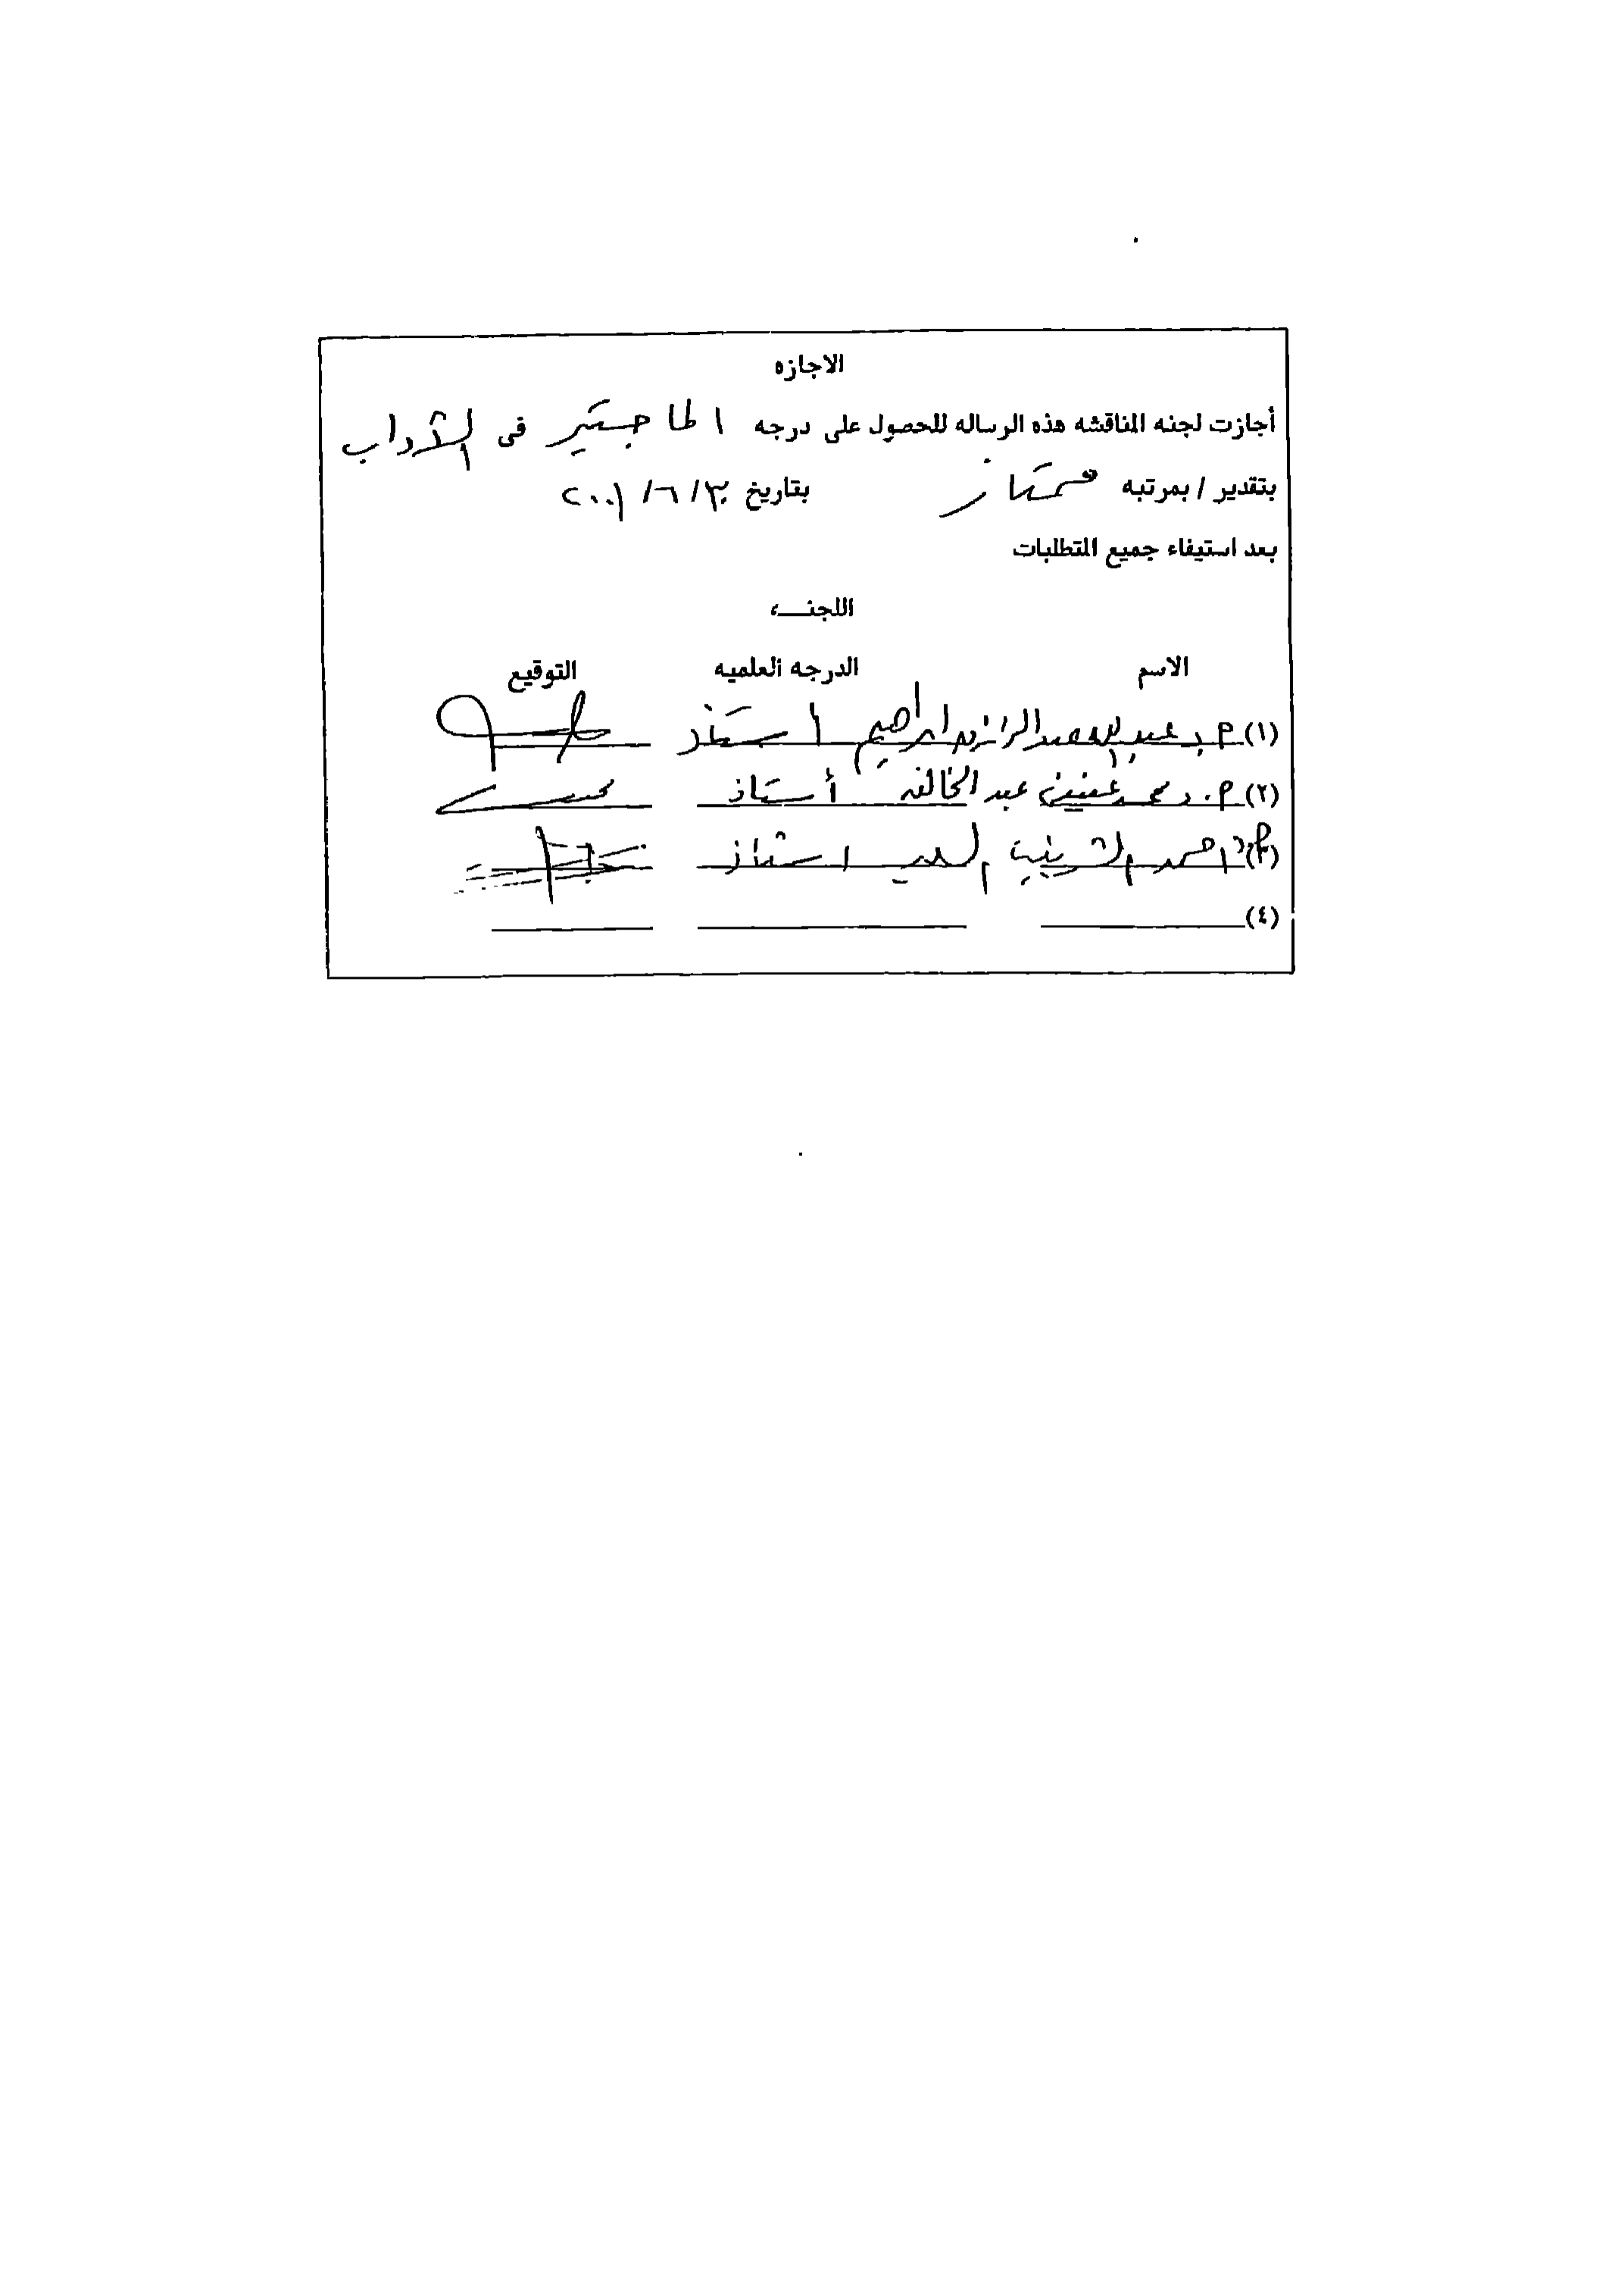 الاجازه
أجازت لجنه المناقشه هذه الرساله للحصول على درجه الماجستير فى الآداب
بتقدير / بمرتبه ممتاز بتاريخ ٣٠/٦/٢٠٠١
بعد استيفاء جميع المتطلبات
اللجنـــه
الاسم الدرجه العلميه التوقيع
(١) عبد الله عبد الرازق ابراهيم استاذ
(٢) م.د محمد عفيفى عبد الخالق أستاذ
(٣) احمد السيد استاذ
(٤)